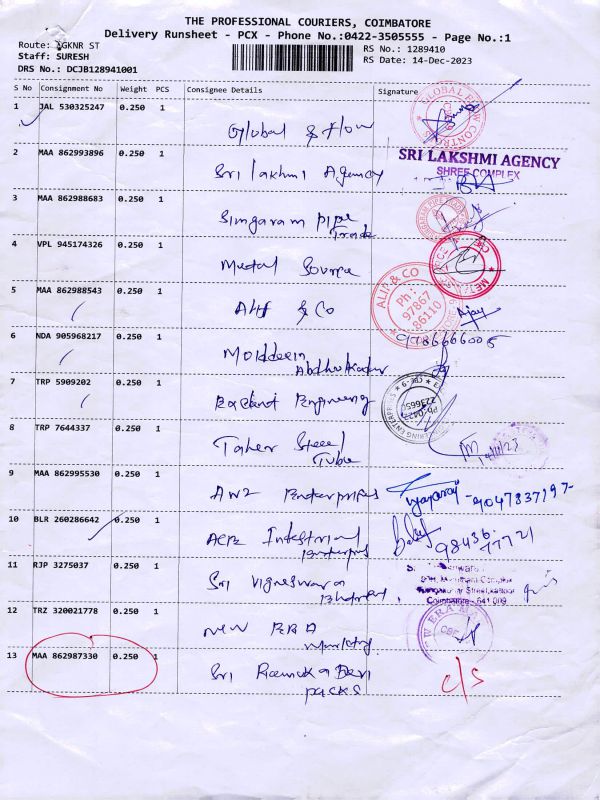 THE PROFESSIONAL COURIERS, COIMBATORE
Delivery Runsheet - PCX - Phone No.:0422-3505555 - Page No.:1
Route: GKNR ST
RS No.: 1289410
Staff: SURESH
RS Date: 14-Dec-2023
DRS No.: DCJB128941001
S No Consignment No Weight PCS Consignee Details Signature
1 JAL 530325247 0.250 1
Global & Flow
2 MAA 862993896 0.250 1
SRI LAKSHMI AGENCY
SHREE COMPLEX
Sri lakhmi Agency
3 MAA 862988683 0.250 1
Singaram pipe
Trade
4 VPL 945174326 0.250 1
Metal Source
5 MAA 862988543 0.250 1
& Co
ALIF & CO
Ph :
97867
86110
Ajay
6 NDA 905968217 0.250 1
9786666005
7 TRP 5909202 0.250 1
8 TRP 7644337 0.250 1
Taher Steel
Tube
9 MAA 862995530 0.250 1
9047837197
10 BLR 260286642 0.250 1
98436
77721
11 RJP 3275037 0.250 1
Sri
Coimbatore - 641 009
12 TRZ 320021778 0.250 1
New ERA
13 MAA 862987330 0.250 1
Sri Renuka Devi
packs
c/s